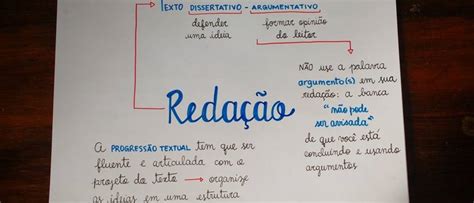 TEXTO DISSERTATIVO - ARGUMENTATIVO
defender
uma ideia
formar opinião
do leitor
NÃO use a palavra
argumento(s) em sua
redação: a banca
"não pode
ser avisada"
de que você está
concluindo e usando
argumentos
Redação
A PROGRESSÃO TEXTUAL tem que ser
fluente e articulada com o
projeto do texto → organize
as ideias em uma estrutura